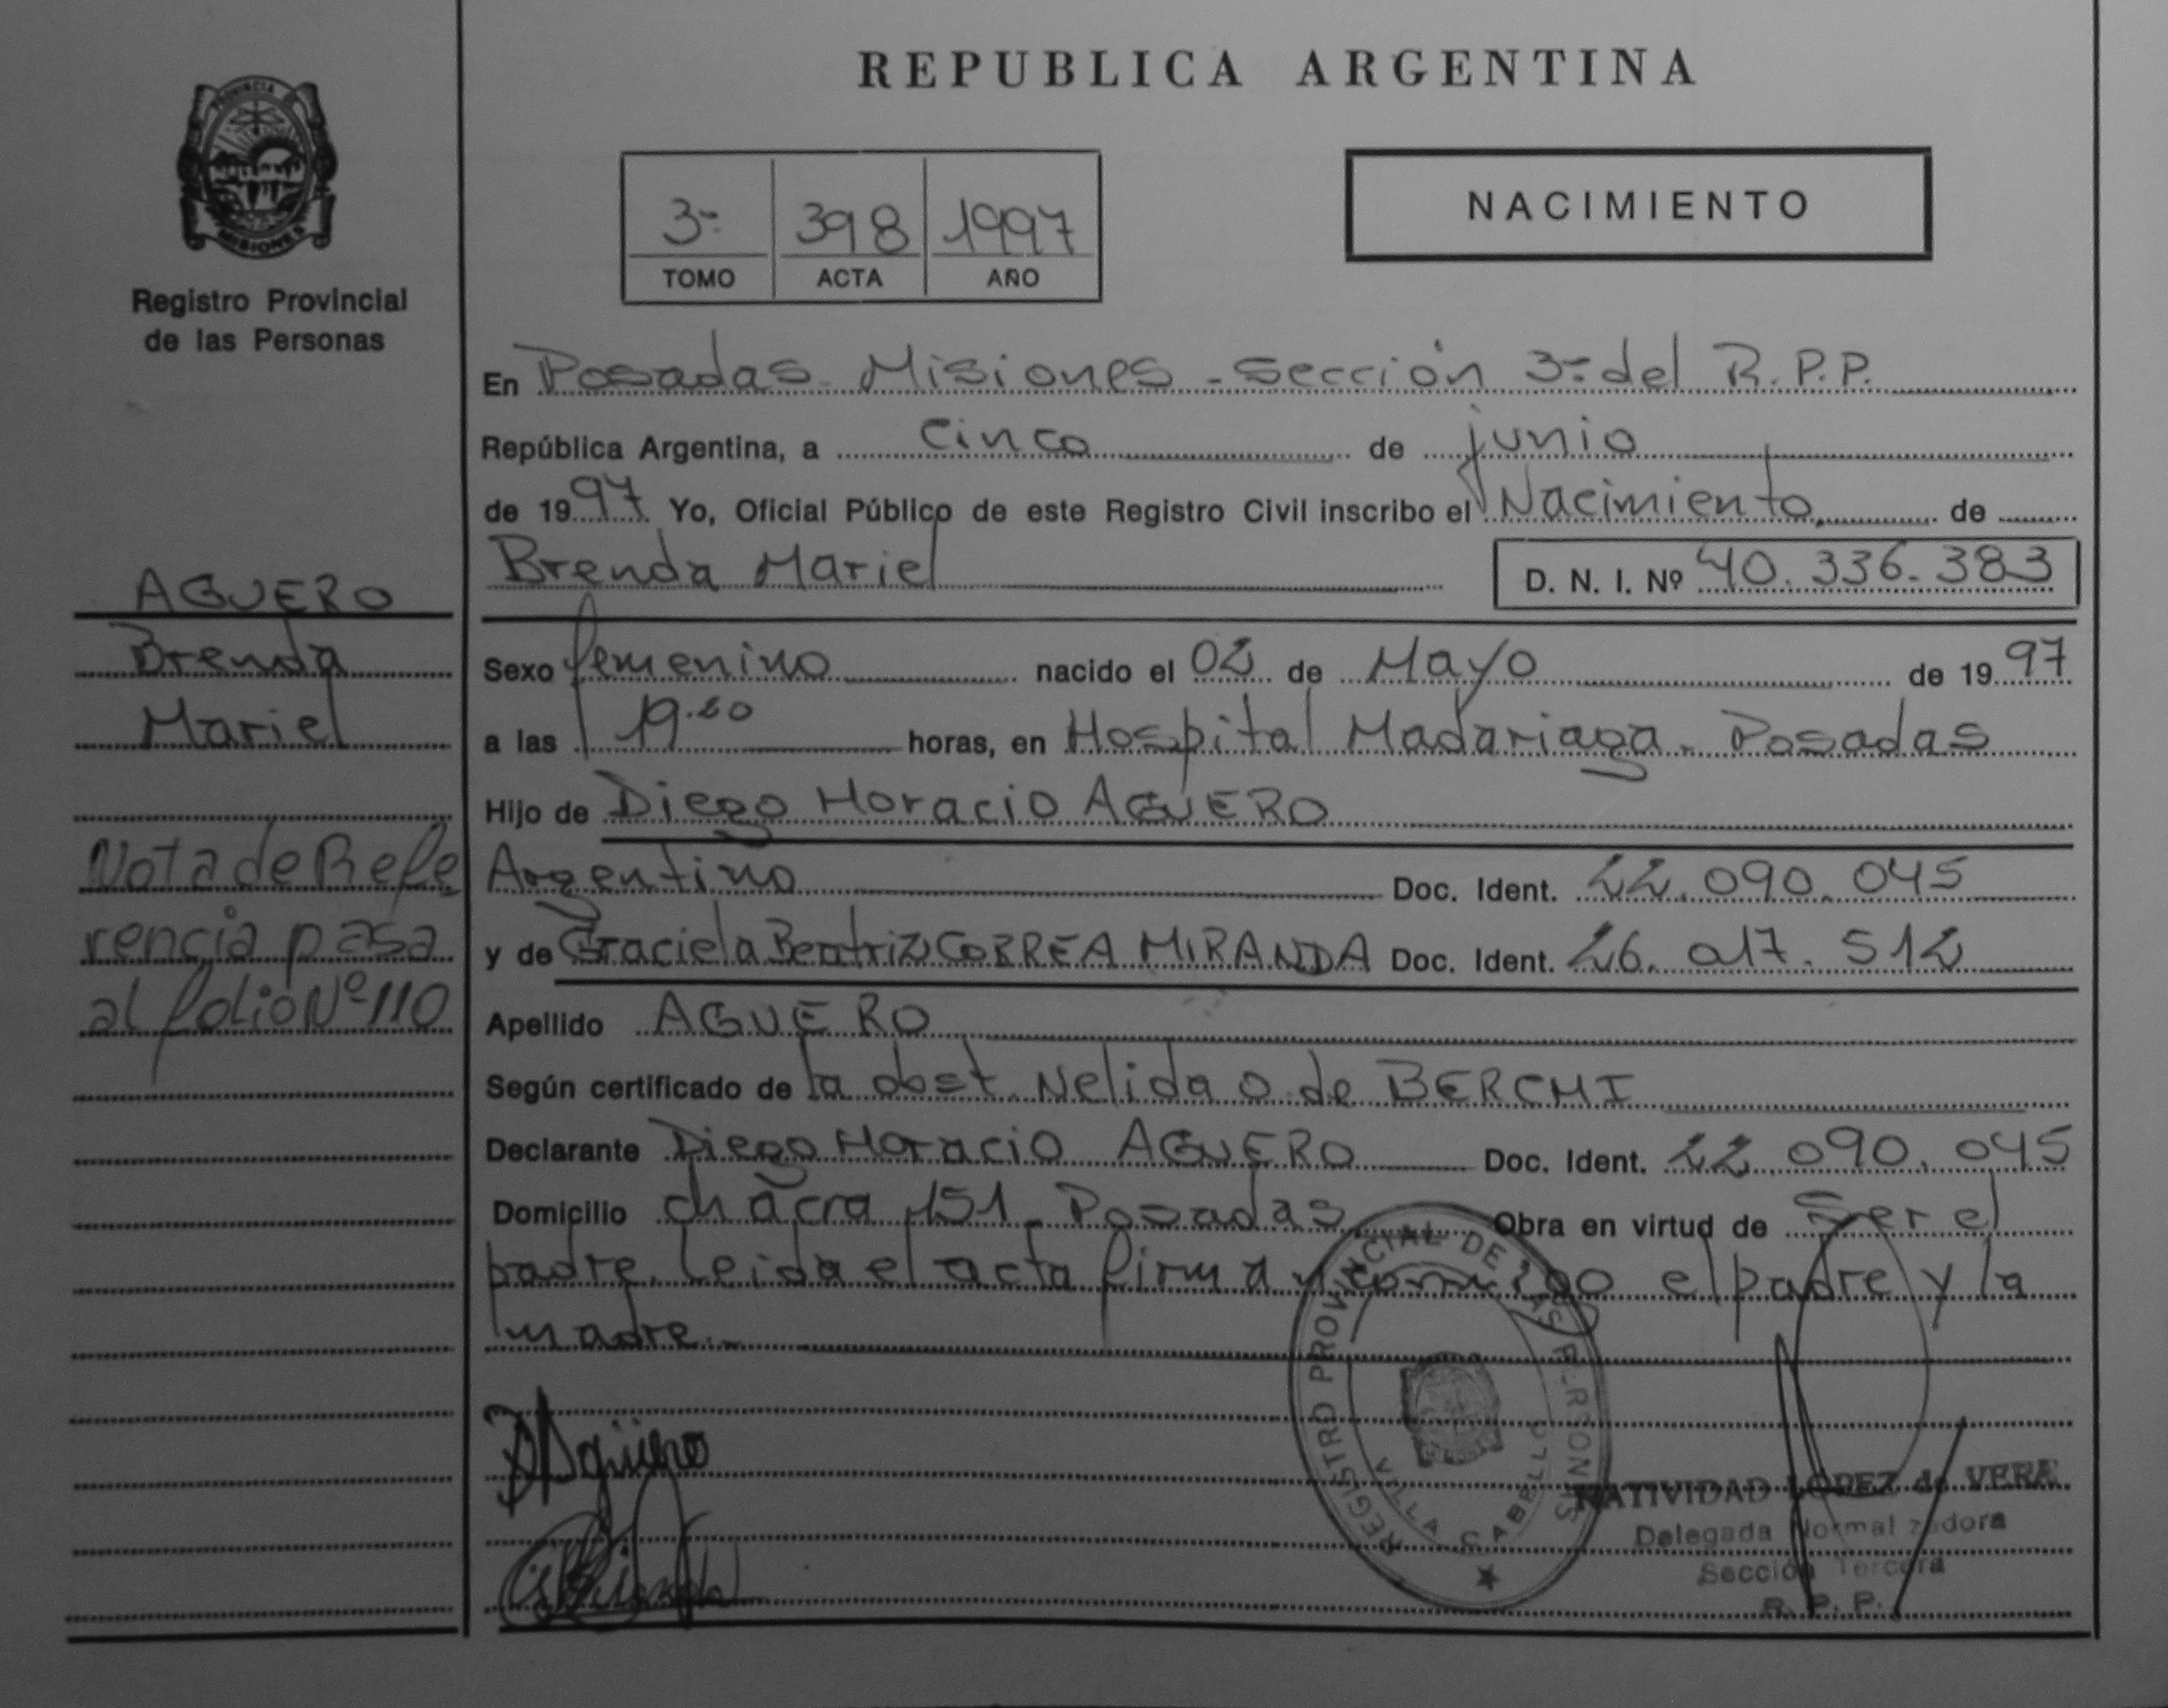 REPUBLICA ARGENTINA
PROVINCIA DE
MISIONES
Registro Provincial
de las Personas
3º 398 1997
TOMO ACTA AÑO
NACIMIENTO
En Posadas. Misiones - Sección 3º del R.P.P.
República Argentina, a cinco de junio
de 1997 Yo, Oficial Público de este Registro Civil inscribo el Nacimiento de
Brenda Mariel D. N. I. Nº 40.336.383
AGUERO
Brenda
Mariel
Nota de Refe
rencia pasa
al folio Nº 110
Sexo femenino nacido el 02 de Mayo de 1997
a las 19.20 horas, en Hospital Madariaga. Posadas
Hijo de Diego Horacio AGUERO
Argentino Doc. Ident. 22.090.045
y de Graciela Beatriz CORREA MIRANDA Doc. Ident. 26.017.512
Apellido AGUERO
Según certificado de la obst. Nelida O. de BERCHI
Declarante Diego Horacio AGUERO Doc. Ident. 22.090.045
Domicilio chacra 151. Posadas Obra en virtud de Ser el
padre. Leida el acta firman conmigo el padre y la
madre.
DAgüero
REGISTRO PROVINCIAL DE LAS PERSONAS
VILLA CABELLO
NATIVIDAD LOPEZ de VERA
Delegada Normalizadora
Sección Tercera
R. P. P.